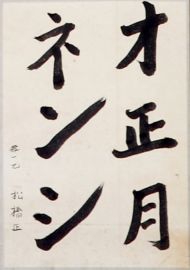 オ正月
ネンシ
松橋正